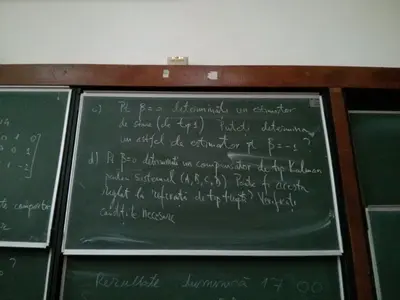 c) Pt β=0 determinați un estimator
de stare (de tip 1) Puteți determina
un astfel de estimator pt β=-1 ?
d) Pt β=0 determinați un compensator de tip Kalman
pentru sistemul (A,B,C,D) Poate fi acesta
reglat la referință de tip treaptă? Verificați
condițiile necesare
Rezultate duminică 17 00